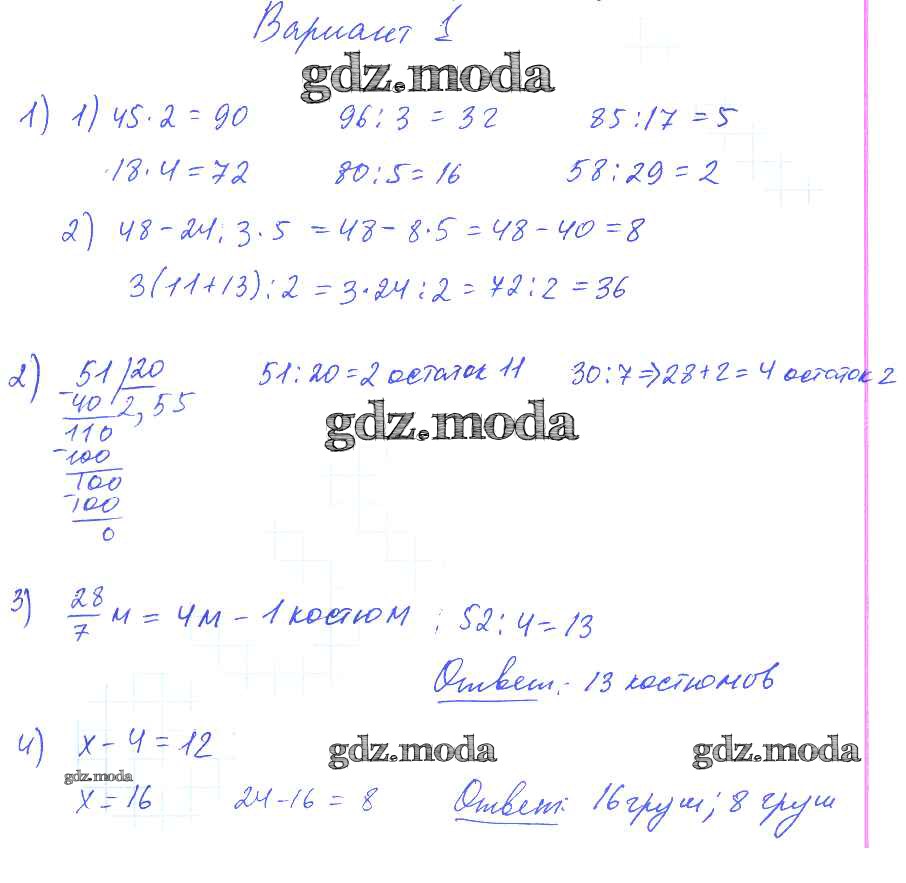 Вариант 1
gdz.moda
1) 1) 45·2 = 90 96:3 = 32 85:17 = 5
18·4 = 72 80:5 = 16 58:29 = 2
2) 48 - 24:3·5 = 48 - 8·5 = 48 - 40 = 8
3(11+13):2 = 3·24:2 = 72:2 = 36
2) 51 20 51:20 = 2 остаток 11 30:7 ⇒ 28+2 = 4 остаток 2
-40 2,55
gdz.moda
110
-100
100
-100
0
3) 28/7 м = 4м - 1 костюм ; 52:4 = 13
Ответ: 13 костюмов
4) x - 4 = 12
gdz.moda gdz.moda
gdz.moda
x = 16 24-16 = 8 Ответ: 16 груш; 8 груш